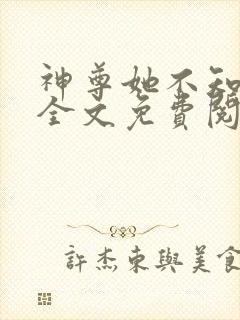 神尊她不知
全文免費閱
許杰東與美食